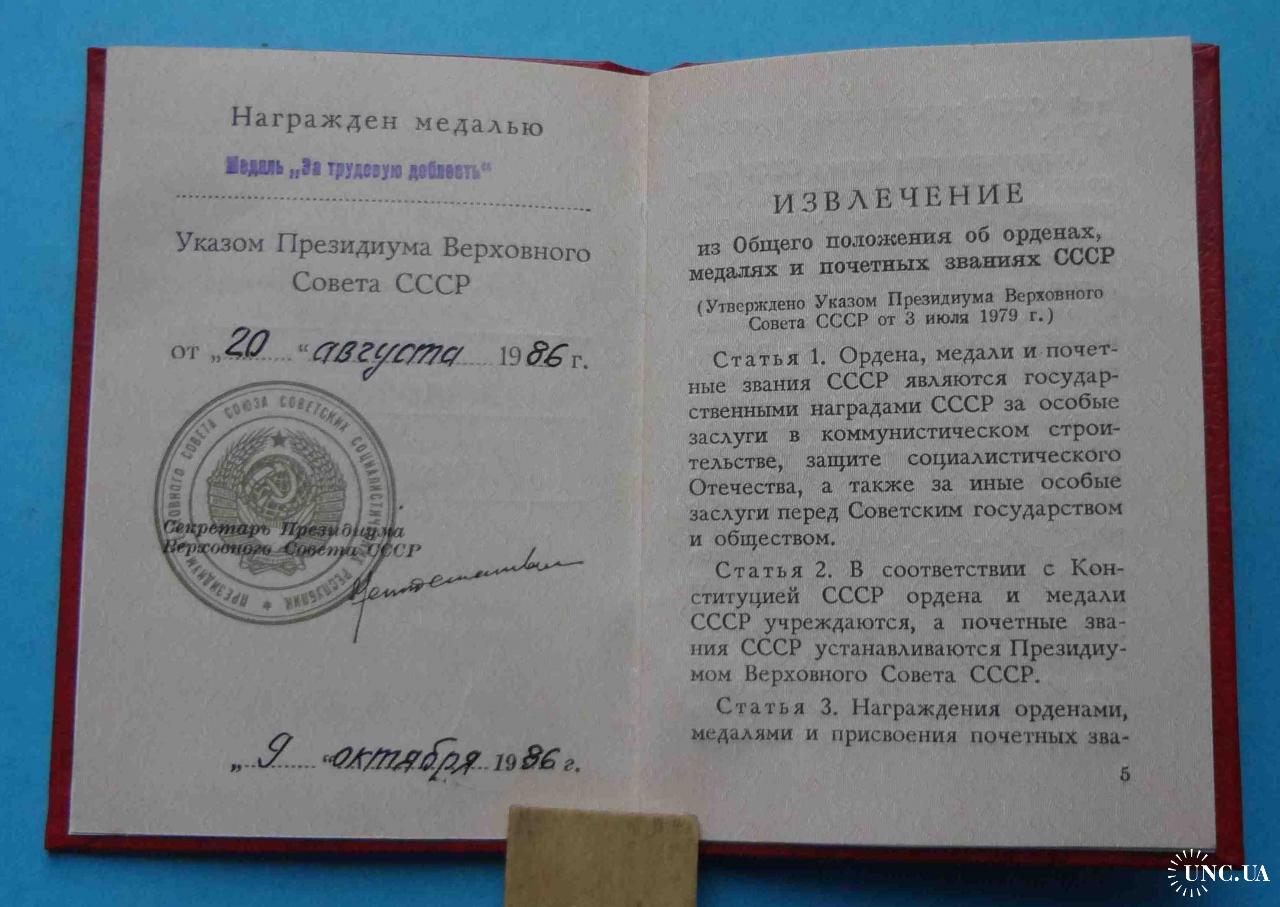 Награжден медалью
Медаль „За трудовую доблесть“
Указом Президиума Верховного
Совета СССР
от „20“ августа 1986 г.
ПРЕЗИДИУМ ВЕРХОВНОГО СОВЕТА СОЮЗА СОВЕТСКИХ СОЦИАЛИСТИЧЕСКИХ РЕСПУБЛИК
Секретарь Президиума
Верховного Совета СССР
„9“ октября 1986 г.
ИЗВЛЕЧЕНИЕ
из Общего положения об орденах,
медалях и почетных званиях СССР
(Утверждено Указом Президиума Верховного
Совета СССР от 3 июля 1979 г.)
Статья 1. Ордена, медали и почет-
ные звания СССР являются государ-
ственными наградами СССР за особые
заслуги в коммунистическом строи-
тельстве, защите социалистического
Отечества, а также за иные особые
заслуги перед Советским государством
и обществом.
Статья 2. В соответствии с Кон-
ституцией СССР ордена и медали
СССР учреждаются, а почетные зва-
ния СССР устанавливаются Президиу-
мом Верховного Совета СССР.
Статья 3. Награждения орденами,
медалями и присвоения почетных зва-
5
UNC.UA